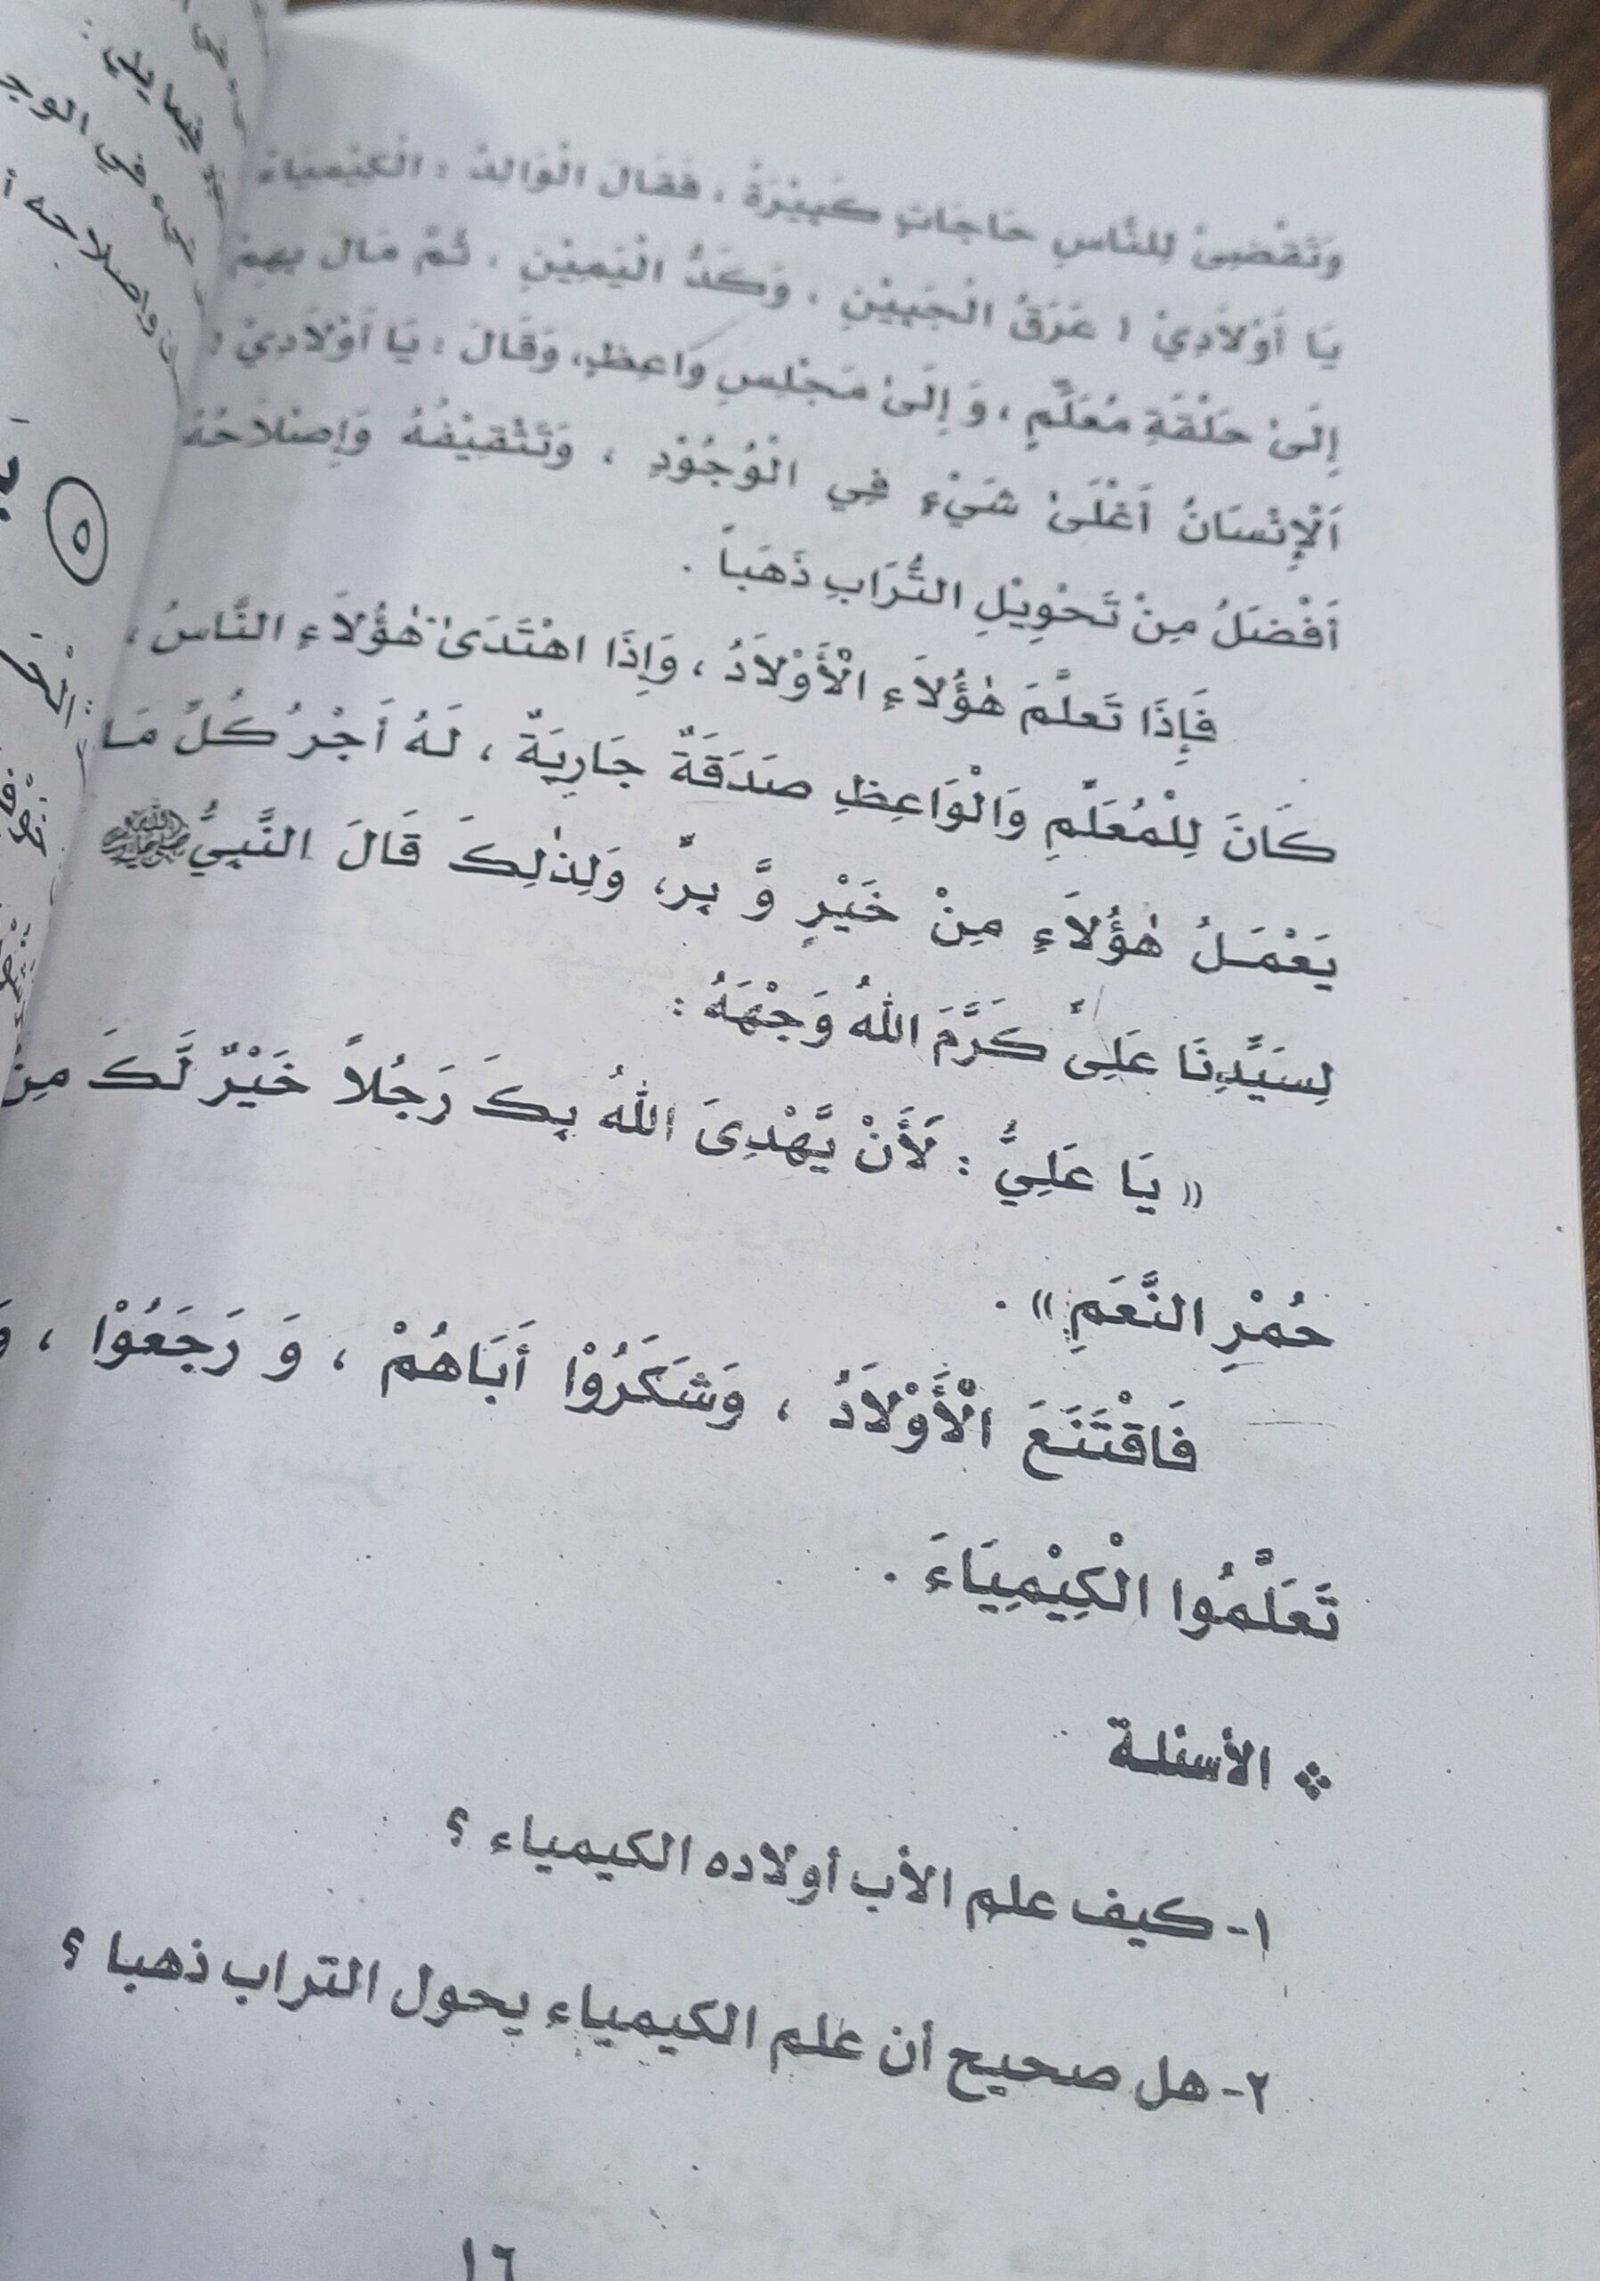 وَتَقْضِىْ لِلنَّاسِ حَاجَاتٍ كَبِيْرَةً ، فَقَالَ الْوَالِدُ : الْكِيْمِيَاءُ
يَا أَوْلاَدِيْ ! عَرَقُ الْجَبِيْنِ ، وَكَدُّ الْيَمِيْنِ ، ثُمَّ مَالَ بِهِمْ
إِلَىٰ حَلْقَةِ مُعَلِّمٍ ، وَ إِلَىٰ مَجْلِسِ وَاعِظٍ، وَقَالَ : يَا أَوْلاَدِيْ !
اَلْإِنْسَانُ أَغْلَىٰ شَيْءٍ فِي الْوُجُوْدِ ، وَتَثْقِيْفُهُ وَإِصْلاَحُهُ
أَفْضَلُ مِنْ تَحْوِيْلِ التُّرَابِ ذَهَباً .
فَإِذَا تَعَلَّمَ هٰؤُلاَءِ الْأَوْلاَدُ ، وَإِذَا اهْتَدَىٰ هٰؤُلاَءِ النَّاسُ ،
كَانَ لِلْمُعَلِّمِ وَالْوَاعِظِ صَدَقَةٌ جَارِيَةٌ ، لَهُ أَجْرُ كُلِّ مَا
يَعْمَلُ هٰؤُلاَءِ مِنْ خَيْرٍ وَّ بِرٍّ، وَلِذٰلِكَ قَالَ النَّبِيُّ ﷺ
لِسَيِّدِنَا عَلِىٍّ كَرَّمَ اللهُ وَجْهَهُ :
« يَا عَلِيُّ : لَأَنْ يَّهْدِىَ اللهُ بِكَ رَجُلاً خَيْرٌ لَّكَ مِنْ
حُمْرِ النَّعَمِ » .
فَاقْتَنَعَ الْأَوْلاَدُ ، وَشَكَرُوْا أَبَاهُمْ ، وَ رَجَعُوْا ،
تَعَلَّمُوا الْكِيْمِيَاءَ .
❖ الأسئلة
١- كيف علم الأب أولاده الكيمياء ؟
٢- هل صحيح أن علم الكيمياء يحول التراب ذهبا ؟
١٦
فيما يلي :
في الوج
واصلاحه أ
٥